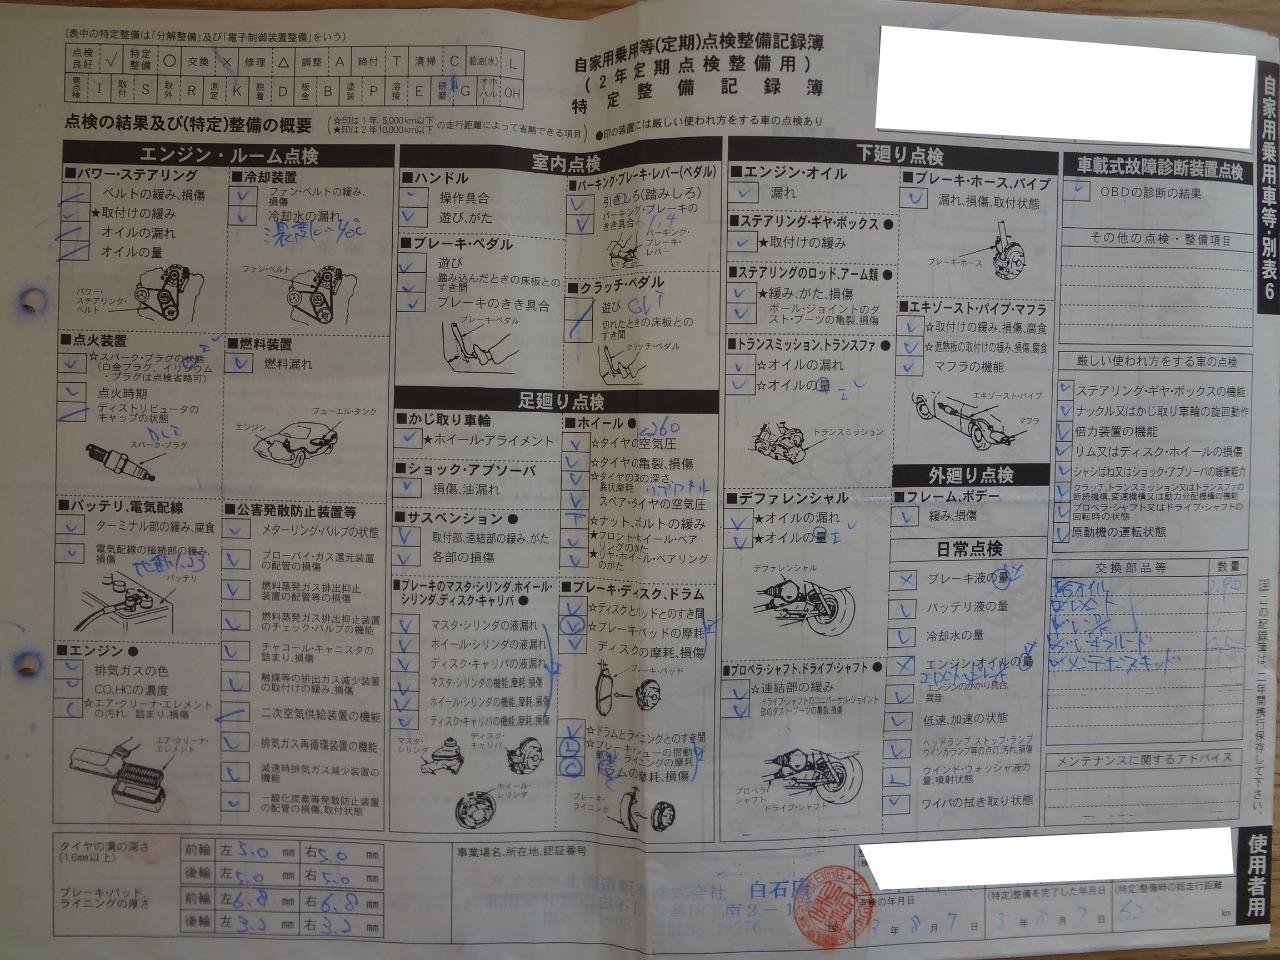 (表中の特定整備は「分解整備」及び「電子制御装置整備」をいう)
点検良好 ✓ 特定整備 ○ 交換 × 修理 △ 調整 A 締付 T 清掃 C 給油(水) L
要点検 I 取付 S 取外 R 測定 K 脱着 D 板金 B 塗装 P 溶接 E 研磨 G オーバーホール OH
自家用乗用等(定期)点検整備記録簿
(2年定期点検整備用)
特定整備記録簿
点検の結果及び(特定)整備の概要
☆印は1年 5,000km以下
★印は2年10,000km以下
の走行距離によって省略できる項目
●印の装置には厳しい使われ方をする車の点検あり
自家用乗用車等・別表6
エンジン・ルーム点検
■パワー・ステアリング
ベルトの緩み、損傷
★取付けの緩み
オイルの漏れ
オイルの量
パワー・ステアリング・ベルト
■点火装置
☆スパーク・プラグの状態
(白金プラグ、イリジウム・プラグは点検省略可)
点火時期
ディストリビュータのキャップの状態
DLI
スパーク・プラグ
■バッテリ、電気配線
ターミナル部の緩み、腐食
電気配線の接続部の緩み、損傷
バッテリ
■エンジン●
排気ガスの色
CO、HCの濃度
☆エア・クリーナ・エレメントの汚れ、詰まり、損傷
エア・クリーナ・エレメント
■冷却装置
ファン・ベルトの緩み、損傷
冷却水の漏れ
ファン・ベルト
■燃料装置
燃料漏れ
フューエル・タンク
エンジン
■公害発散防止装置等
メターリング・バルブの状態
ブローバイ・ガス還元装置の配管の損傷
燃料蒸発ガス排出抑止装置の配管等の損傷
燃料蒸発ガス排出抑止装置のチェック・バルブの機能
チャコール・キャニスタの詰まり、損傷
触媒等の排出ガス減少装置の取付けの緩み、損傷
二次空気供給装置の機能
排気ガス再循環装置の機能
減速時排気ガス減少装置の機能
一酸化炭素等発散防止装置の配管の損傷、取付状態
室内点検
■ハンドル
操作具合
遊び、がた
■ブレーキ・ペダル
遊び
踏み込んだときの床板とのすき間
ブレーキのきき具合
ブレーキ・ペダル
■パーキング・ブレーキ・レバー(ペダル)
引きしろ(踏みしろ)
パーキング・ブレーキのきき具合
パーキング・ブレーキ・レバー
■クラッチ・ペダル
遊び
切れたときの床板とのすき間
クラッチ・ペダル
足廻り点検
■かじ取り車輪
★ホイール・アライメント
■ショック・アブソーバ
損傷、油漏れ
■サスペンション●
取付部、連結部の緩み、がた
各部の損傷
■ブレーキのマスタ・シリンダ、ホイール・シリンダ、ディスク・キャリパ●
マスタ・シリンダの液漏れ
ホイール・シリンダの液漏れ
ディスク・キャリパの液漏れ
マスタ・シリンダの機能、摩耗、損傷
ホイール・シリンダの機能、摩耗、損傷
ディスク・キャリパの機能、摩耗、損傷
マスタ・シリンダ
ディスク・キャリパ
ホイール・シリンダ
■ホイール●
☆タイヤの空気圧
☆タイヤの亀裂、損傷
☆タイヤの溝の深さ、異状摩耗
スペア・タイヤの空気圧
☆ナット、ボルトの緩み
★フロント・ホイール・ベアリングのがた
★リヤ・ホイール・ベアリングのがた
■ブレーキ・ディスク、ドラム
☆ディスクとパッドとのすき間
☆ブレーキパッドの摩耗
ディスクの摩耗、損傷
ブレーキ・パッド
☆ドラムとライニングとのすき間
☆ブレーキ・シューの摺動部分、ライニングの摩耗
ドラムの摩耗、損傷
ブレーキ・ライニング
下廻り点検
■エンジン・オイル
漏れ
■ステアリング・ギヤ・ボックス●
★取付けの緩み
■ステアリングのロッド、アーム類●
★緩み、がた、損傷
ボール・ジョイントのダスト・ブーツの亀裂、損傷
■トランスミッション、トランスファ●
☆オイルの漏れ
☆オイルの量
トランスミッション
■デファレンシャル
★オイルの漏れ
★オイルの量
デファレンシャル
■プロペラ・シャフト、ドライブ・シャフト●
☆連結部の緩み
ドライブ・シャフトのユニバーサル・ジョイント部のダスト・ブーツの亀裂、損傷
プロペラ・シャフト
ドライブ・シャフト
■ブレーキ・ホース、パイプ
漏れ、損傷、取付状態
ブレーキ・ホース
■エキゾースト・パイプ・マフラ
☆取付けの緩み、損傷、腐食
☆遮熱板の取付けの緩み、損傷、腐食
マフラの機能
エキゾースト・パイプ
マフラ
外廻り点検
■フレーム、ボデー
緩み、損傷
日常点検
ブレーキ液の量
バッテリ液の量
冷却水の量
エンジン・オイルの量
エンジンのかかり具合、異音
低速、加速の状態
ヘッドランプ、ストップ・ランプ、ウインカランプ等の点灯、汚れ、損傷
ウインド・ウォッシャ液の量、噴射状態
ワイパの拭き取り状態
車載式故障診断装置点検
OBDの診断の結果
その他の点検・整備項目
厳しい使われ方をする車の点検
ステアリング・ギヤ・ボックスの機能
ナックル又はかじ取り車輪の旋回動作
倍力装置の機能
リム又はディスク・ホイールの損傷
シャシばね又はショック・アブソーバの緩衝能力
クラッチ、トランスミッション又はトランスファの断続機構、変速機構又は動力分配機構の機能
プロペラ・シャフト又はドライブ・シャフトの回転時の状態
原動機の運転状態
交換部品等 数量
ブレーキフルード
メンテナンスキット
メンテナンスに関するアドバイス
注 この記録簿は、二年間携行保存して下さい。
使用者用
タイヤの溝の深さ
(1.6mm以上)
前輪 左 5.0 mm 右 5.0 mm
後輪 左 5.0 mm 右 5.0 mm
ブレーキ・パッド、ライニングの厚さ
前輪 左 6.8 mm 右 6.8 mm
後輪 左 3.2 mm 右 3.2 mm
事業場名、所在地、認証番号
株式会社 白石店
点検の年月日
3年 8月 7日
(特定)整備を完了した年月日
3年 8月 7日
(特定)整備時の総走行距離
km